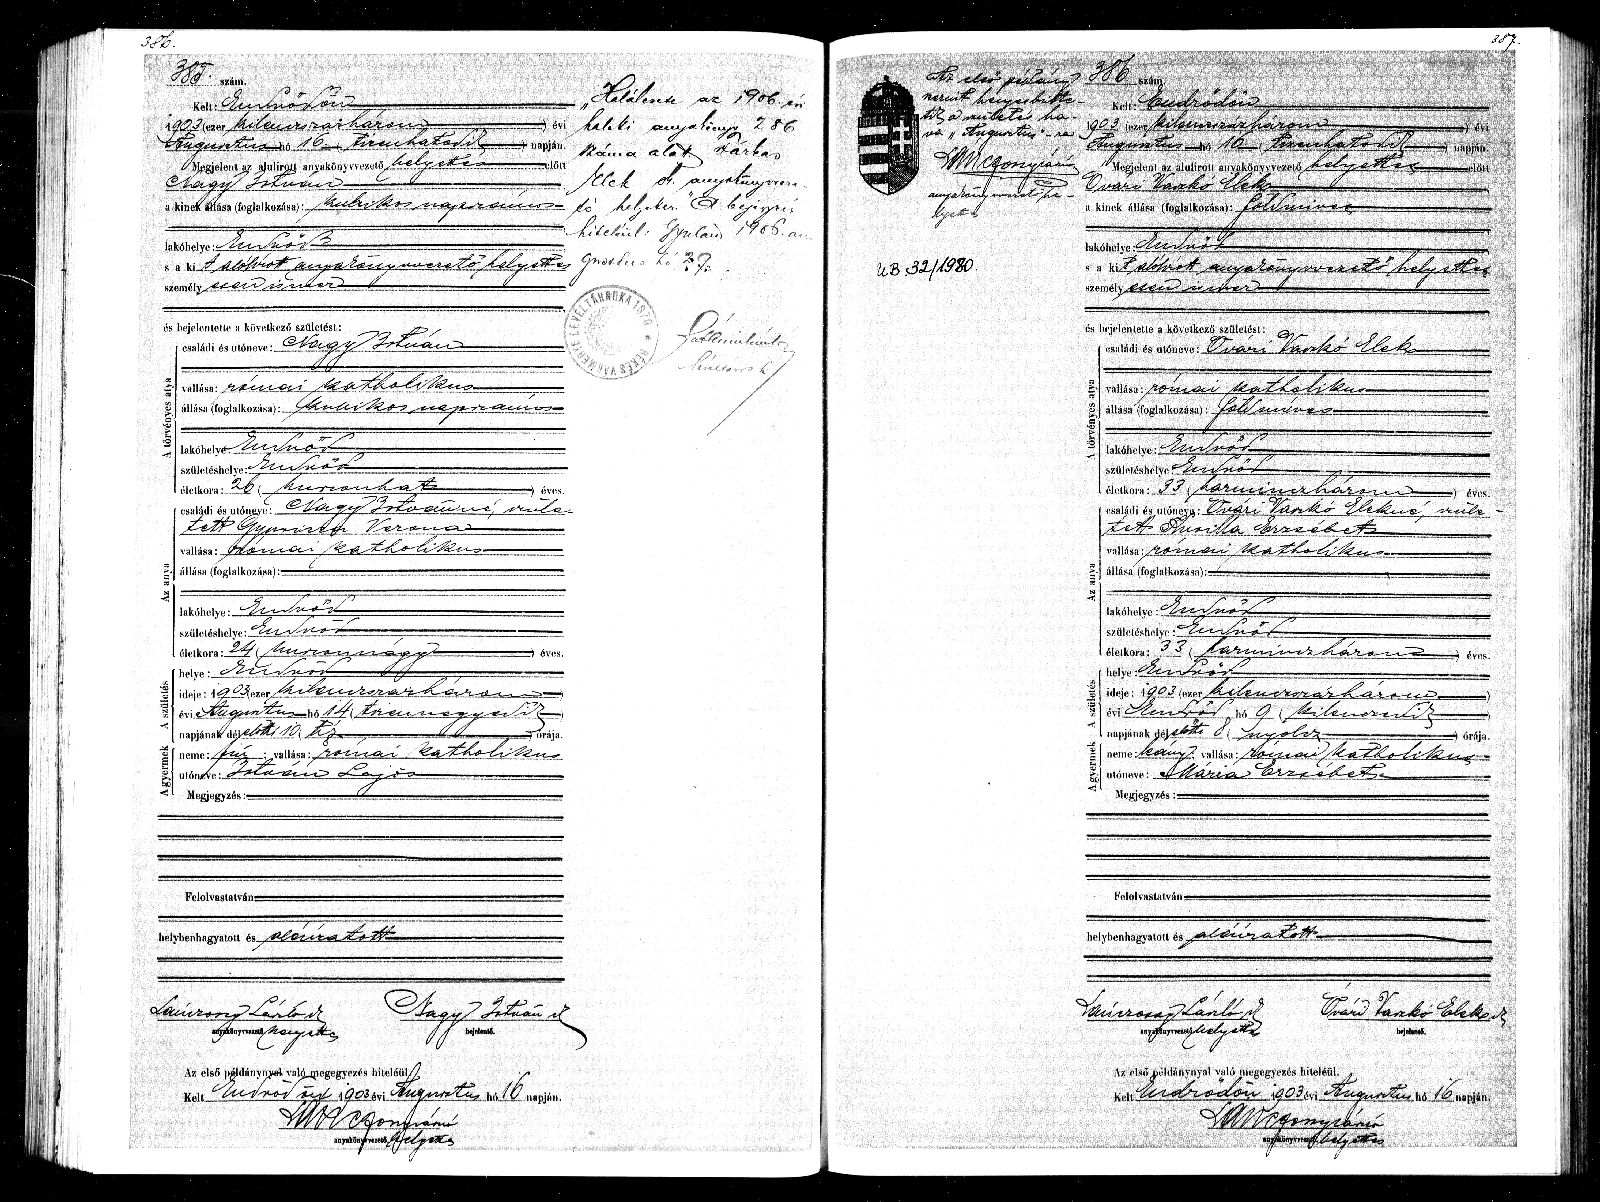 386.
385 szám.
Kelt: Endrődön
1903 (ezer kilencszázhárom) évi
Augusztus hó 16 tizenhatodik napján.
Megjelent az alulirott anyakönyvvezető helyettes előtt
Nagy István
a kinek állása (foglalkozása): kubikos napszámos
lakóhelye: Endrőd
s a kit alólirott anyakönyvvezető helyettes
személyesen ismer
és bejelentette a következő születést:
A törvényes atya
családi és utóneve: Nagy István
vallása: római katholikus
állása (foglalkozása): kubikos napszámos
lakóhelye: Endrőd
születéshelye: Endrőd
életkora: 26 (huszonhat) éves.
Az anya
családi és utóneve: Nagy Istvánné, szüle-
tett Verona
vallása: római katholikus
állása (foglalkozása):
lakóhelye: Endrőd
születéshelye: Endrőd
életkora: 24 (huszonnégy) éves.
A születés
helye: Endrőd
ideje: 1903 (ezer kilencszázhárom)
évi Augusztus hó 14 (tizennegyedik)
napjának délelőtti 10 tiz órája.
A gyermek
neme: fiú vallása: római katholikus
utóneve: István Lajos
Megjegyzés:
Felolvastatván
helybenhagyatott és aláiratott
Lánczossy László Nagy István
anyakönyvvezető helyettes bejelentő.
Az első példánynyal való megegyezés hiteléül.
Kelt Endrődön 1903 évi Augusztus hó 16 napján.
anyakönyvvezető helyettes
„Halálesete az 1906. évi
haláli anyakönyv 286
száma alatt
Elek s. anyakönyvveze-
tő helyettes. A bejegyzés
hiteléül: Gyulán 1906. évi
hó 27.
BÉKÉS VÁRMEGYE LEVÉLTÁRNOKA 1876
387.
Az első példány
szerint
a születés ha-
va „Augusztus"-ra
anyakönyvvezető he-
lyettes
UB. 32/1980.
386 szám.
Kelt: Endrődön
1903 (ezer kilencszázhárom) évi
Augusztus hó 16 tizenhatodik napján.
Megjelent az alulirott anyakönyvvezető helyettes előtt
Óvári Vaskó Elek
a kinek állása (foglalkozása): földmives
lakóhelye: Endrőd
s a kit alólirott anyakönyvvezető helyettes
személyesen ismer
és bejelentette a következő születést:
A törvényes atya
családi és utóneve: Óvári Vaskó Elek
vallása: római katholikus
állása (foglalkozása): földmives
lakóhelye: Endrőd
születéshelye: Endrőd
életkora: 33 (harminczhárom) éves.
Az anya
családi és utóneve: Óvári Vaskó Elekné, szüle-
tett Erzsébet
vallása: római katholikus
állása (foglalkozása):
lakóhelye: Endrőd
születéshelye: Endrőd
életkora: 33 (harminczhárom) éves.
A születés
helye: Endrőd
ideje: 1903 (ezer kilencszázhárom)
évi Endrőd hó 9 (kilenczedik)
napjának délelőtti 8 nyolcz órája.
A gyermek
neme: leány vallása: római katholikus
utóneve: Mária Erzsébet
Megjegyzés:
Felolvastatván
helybenhagyatott és aláiratott
Lánczossy László Óvári Vaskó Elek
anyakönyvvezető helyettes bejelentő.
Az első példánynyal való megegyezés hiteléül.
Kelt Endrődön 1903 évi Augusztus hó 16 napján.
anyakönyvvezető helyettes